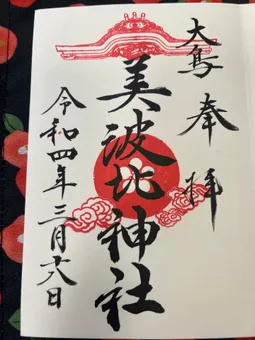 奉拝
大鳥
美波比神社
令和四年三月日